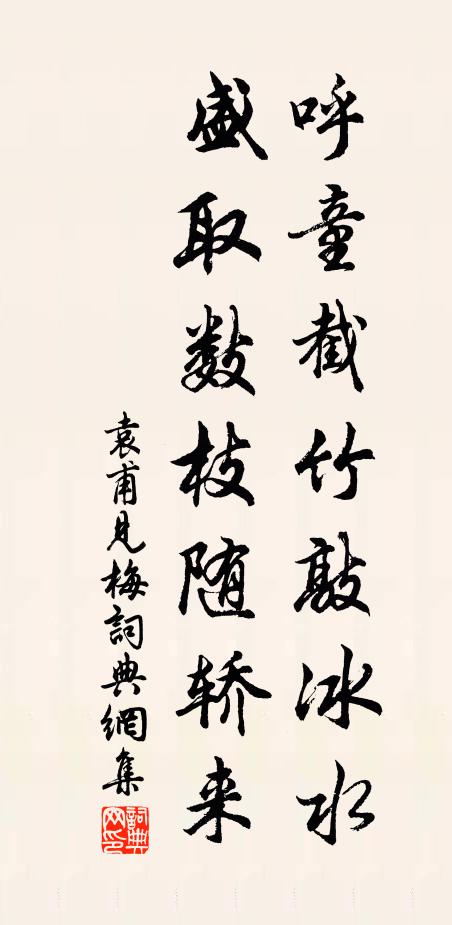 呼童截竹敲冰水
盛取数枝随轿来
袁甫見梅詞典網集
詞典网印